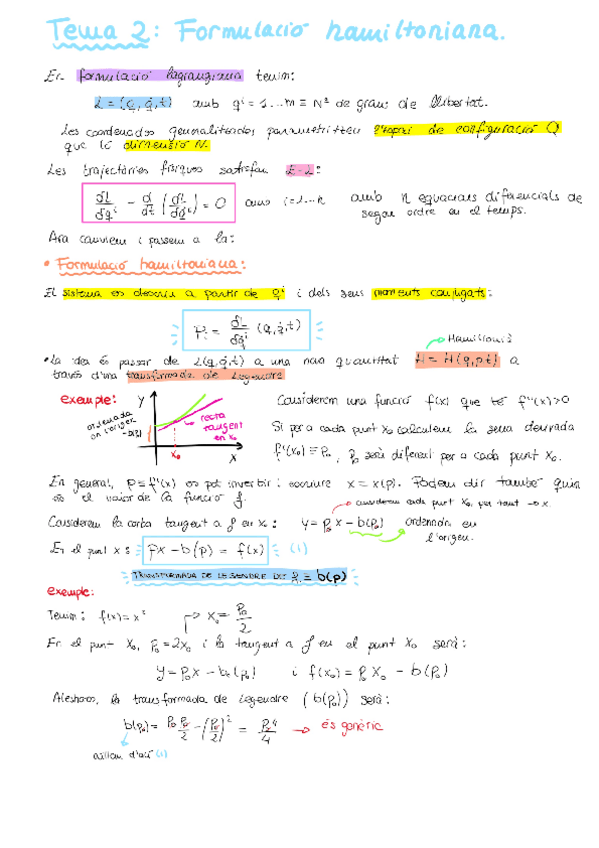 Tema 2: Formulació hamiltoniana.
En formulació lagrangiana tenim:
L = (q, q̇, t) amb qⁱ = 1...n ≡ Nº de graus de llibertat.
Les coordenades generalitzades parametritzen l'espai de configuració Q
que té dimensió N.
Les trajectòries físiques satisfan E-L:
∂L/∂qⁱ - d/dt (∂L/∂q̇ⁱ) = 0 amb i=1...n amb n equacions diferencials de
segon ordre en el temps.
Ara canviem i passem a la:
• Formulació hamiltoniana:
El sistema es descriu a partir de qⁱ i dels seus moments conjugats:
Pᵢ = ∂L/∂q̇ⁱ (q, q̇, t)
Hamiltonià
• La idea és passar de L(q, q̇, t) a una nova quantitat H = H(q, p, t) a
través d'una transformada de Legendre
exemple:
ordenada en l'origen
-b(P₀)
y
recta tangent en x₀
x₀
x
Considerem una funció f(x) que té f''(x)>0
Si per a cada punt x₀ calculem la seua derivada
f'(x₀) ≡ P₀, P₀ serà diferent per a cada punt x₀.
En general, p = f'(x) es pot invertir i escriure x = x(p). Podem dir també quin
és el valor de la funció f.
considerem cada punt x₀ per tant → x
Considerem la corba tangent a f en x₀: y = P₀ x - b(P₀) ordenada en
l'origen.
En el punt x: px - b(p) = f(x) (1)
TRANSFORMADA DE LEGENDRE DE f ≡ b(p)
exemple:
Tenim: f(x) = x² → x₀ = P₀/2
En el punt x₀, P₀ = 2x₀ i la tangent a f en el punt x₀ serà:
y = P₀x - b(P₀) i f(x₀) = P₀x₀ - b(P₀)
Aleshores, la transformada de Legendre (b(P₀)) serà:
b(P₀) = P₀ P₀/2 - (P₀/2)² = P₀²/4 → és genèric
aïllem d'ací (1)